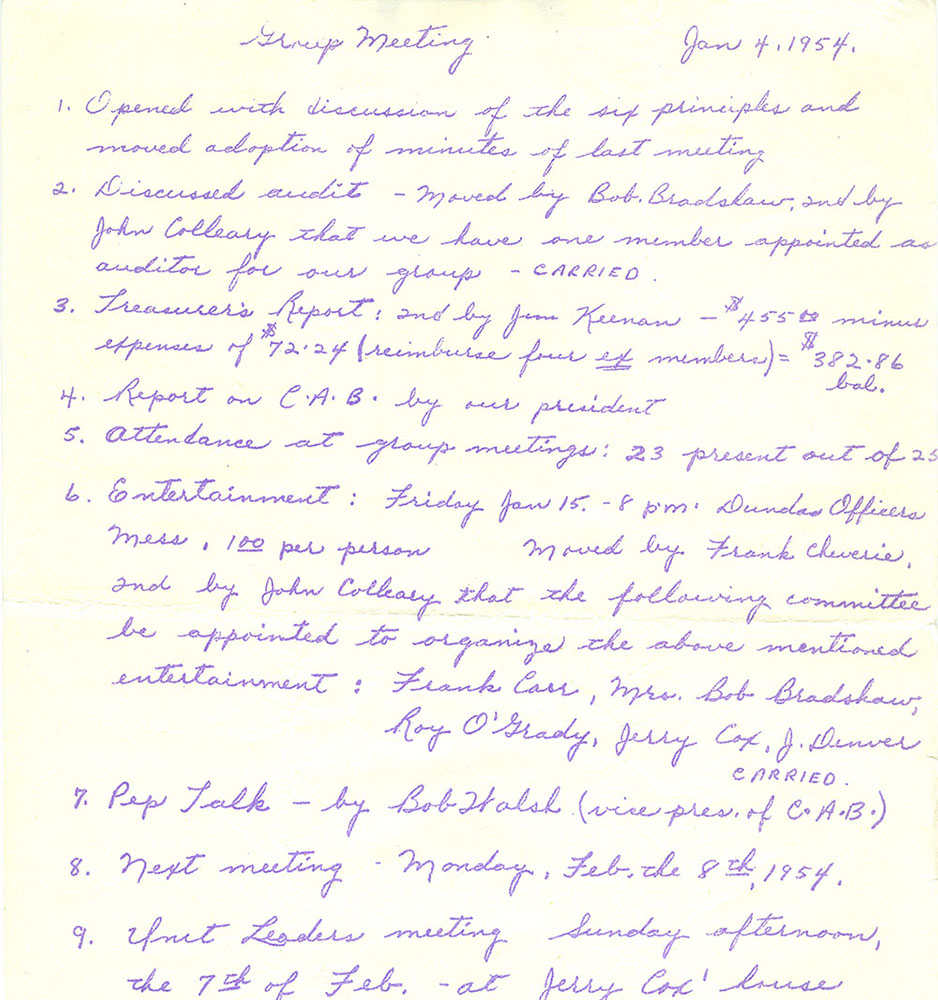 Group Meeting Jan 4. 1954.
1. Opened with discussion of the six principles and
moved adoption of minutes of last meeting
2. Discussed audit - Moved by Bob. Bradshaw, 2nd by
John Colleary that we have one member appointed as
auditor for our group - CARRIED.
3. Treasurer's Report: 2nd by Jim Keenan - $455 00 minus
expenses of $72.24 (reimburse four ex members) = $382.86
bal.
4. Report on C.A.B. by our president
5. Attendance at group meetings: 23 present out of 25
6. Entertainment: Friday Jan 15. - 8 p.m. Dundas Officers
Mess, 1 00 per person Moved by Frank Cheverie,
2nd by John Colleary that the following committee
be appointed to organize the above mentioned
entertainment: Frank Carr, Mrs. Bob Bradshaw,
Roy O'Grady, Jerry Cox, J. Denver
CARRIED.
7. Pep Talk - by Bob Walsh (vice pres. of C.A.B.)
8. Next meeting - Monday, Feb. the 8th, 1954.
9. Unit Leaders meeting Sunday afternoon,
the 7th of Feb. - at Jerry Cox' house